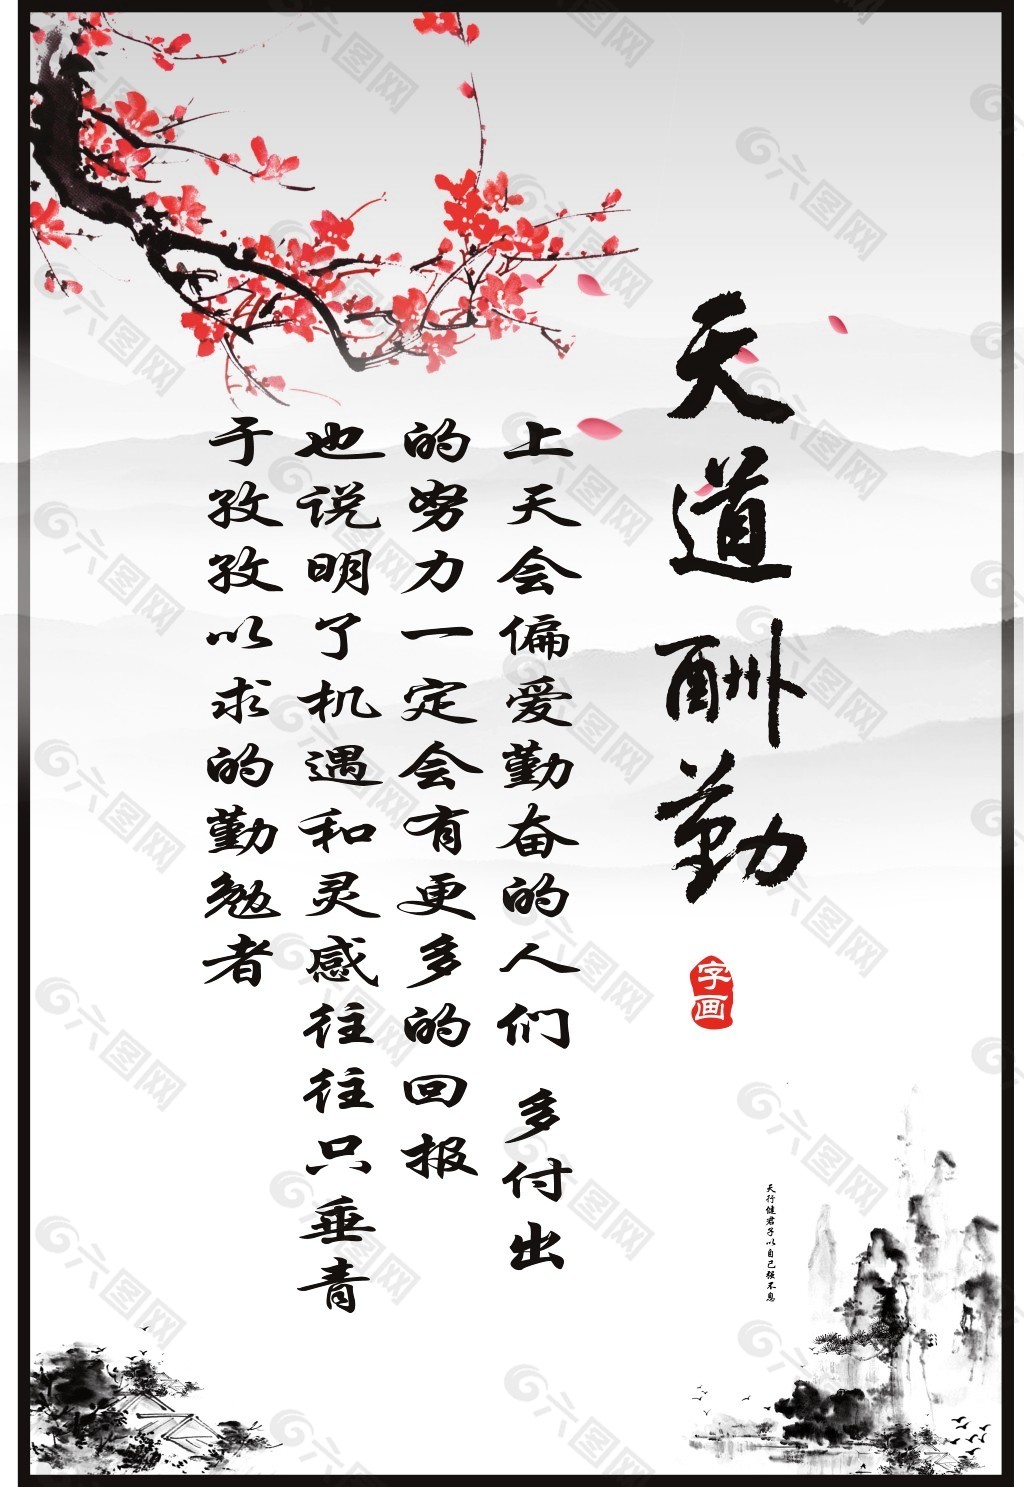 天道酬勤
字画
上天会偏爱勤奋的人们 多付出
的努力一定会有更多的回报
也说明了机遇和灵感往往只垂青
于孜孜以求的勤勉者
天行健君子以自己强不息
六图网